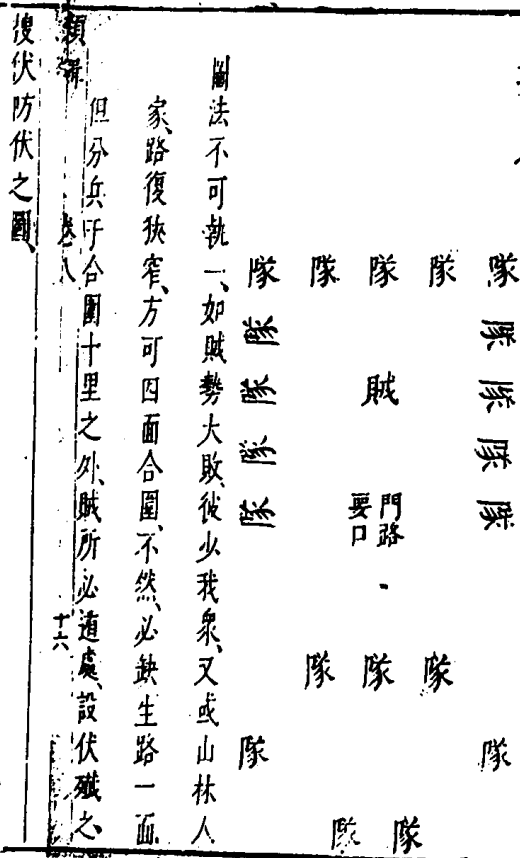 隊 隊 隊 隊 隊
隊 隊
隊 賊 隊
隊 隊
隊 門路 隊
要口
隊 隊 隊
隊 隊
隊 隊
圍法不可執一、如賊勢大敗、彼少我衆、又或山林人
家、路復狹窄、方可四面合圍、不然、必缺生路一面、
但分兵于合圍十里之外、賊所必遁處、設伏殲之、
卷八
十六
搜伏防伏之圖、